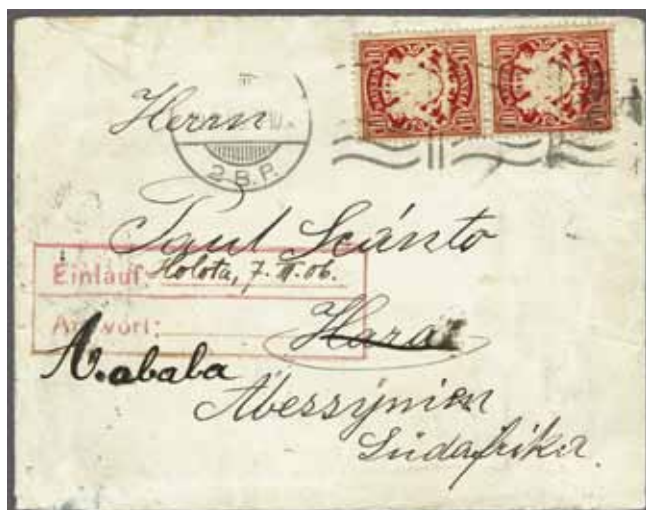 10 10
Herrn
2 B.P.
Paul Scánto
Einlauf: Holota, 7. III. 06.
Antwort:
Harar
A.ababa
Abessÿnien
Südafrika.